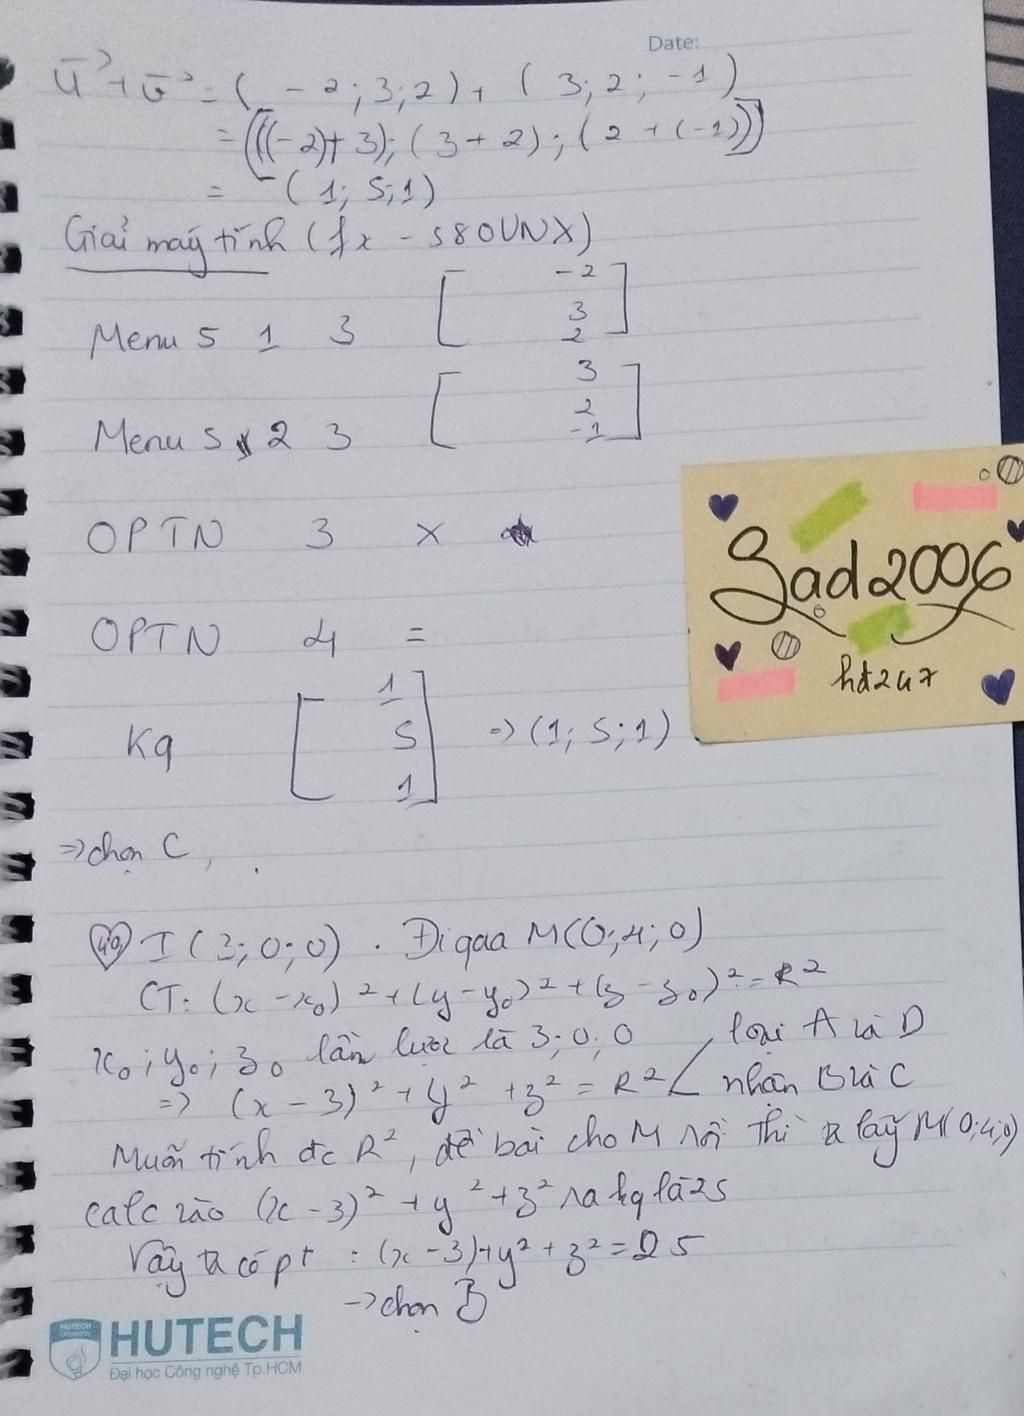 Date:
u⃗ + v⃗ = (-2; 3; 2) + (3; 2; -1)
= (((-2)+3); (3+2); (2+(-1)))
= (1; 5; 1)
Giải máy tính (fx - 580VNX)
Menu 5 1 3 [-2 3 2]
Menu 5 2 3 [3 2 -1]
OPTN 3 x
OPTN 4 =
Kq [1 5 1] => (1; 5; 1)
=> chọn C
Sad2006
hđ247
40 I (3; 0; 0). Đi qua M(0; 4; 0)
CT: (x - x₀)² + (y - y₀)² + (z - z₀)² = R²
x₀; y₀; z₀ lần lượt là 3; 0; 0
loại A và D
=> (x - 3)² + y² + z² = R² < nhận B và C
Muốn tính đc R², đề bài cho M rồi thì ta lấy M(0;4;0)
calc vào (x - 3)² + y² + z² ra kq là 25
Vậy ta có pt : (x - 3) + y² + z² = 25
-> chọn B
HUTECH
University
HUTECH
Đại học Công nghệ Tp.HCM